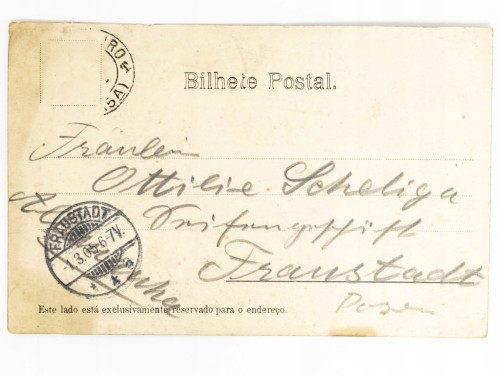 Bilhete Postal.
Fräulein
Ottilie Scheliga
Seifengeschäft
Fraustadt
Posen
FRAUSTADT
Este lado está exclusivamente reservado para o endereço.